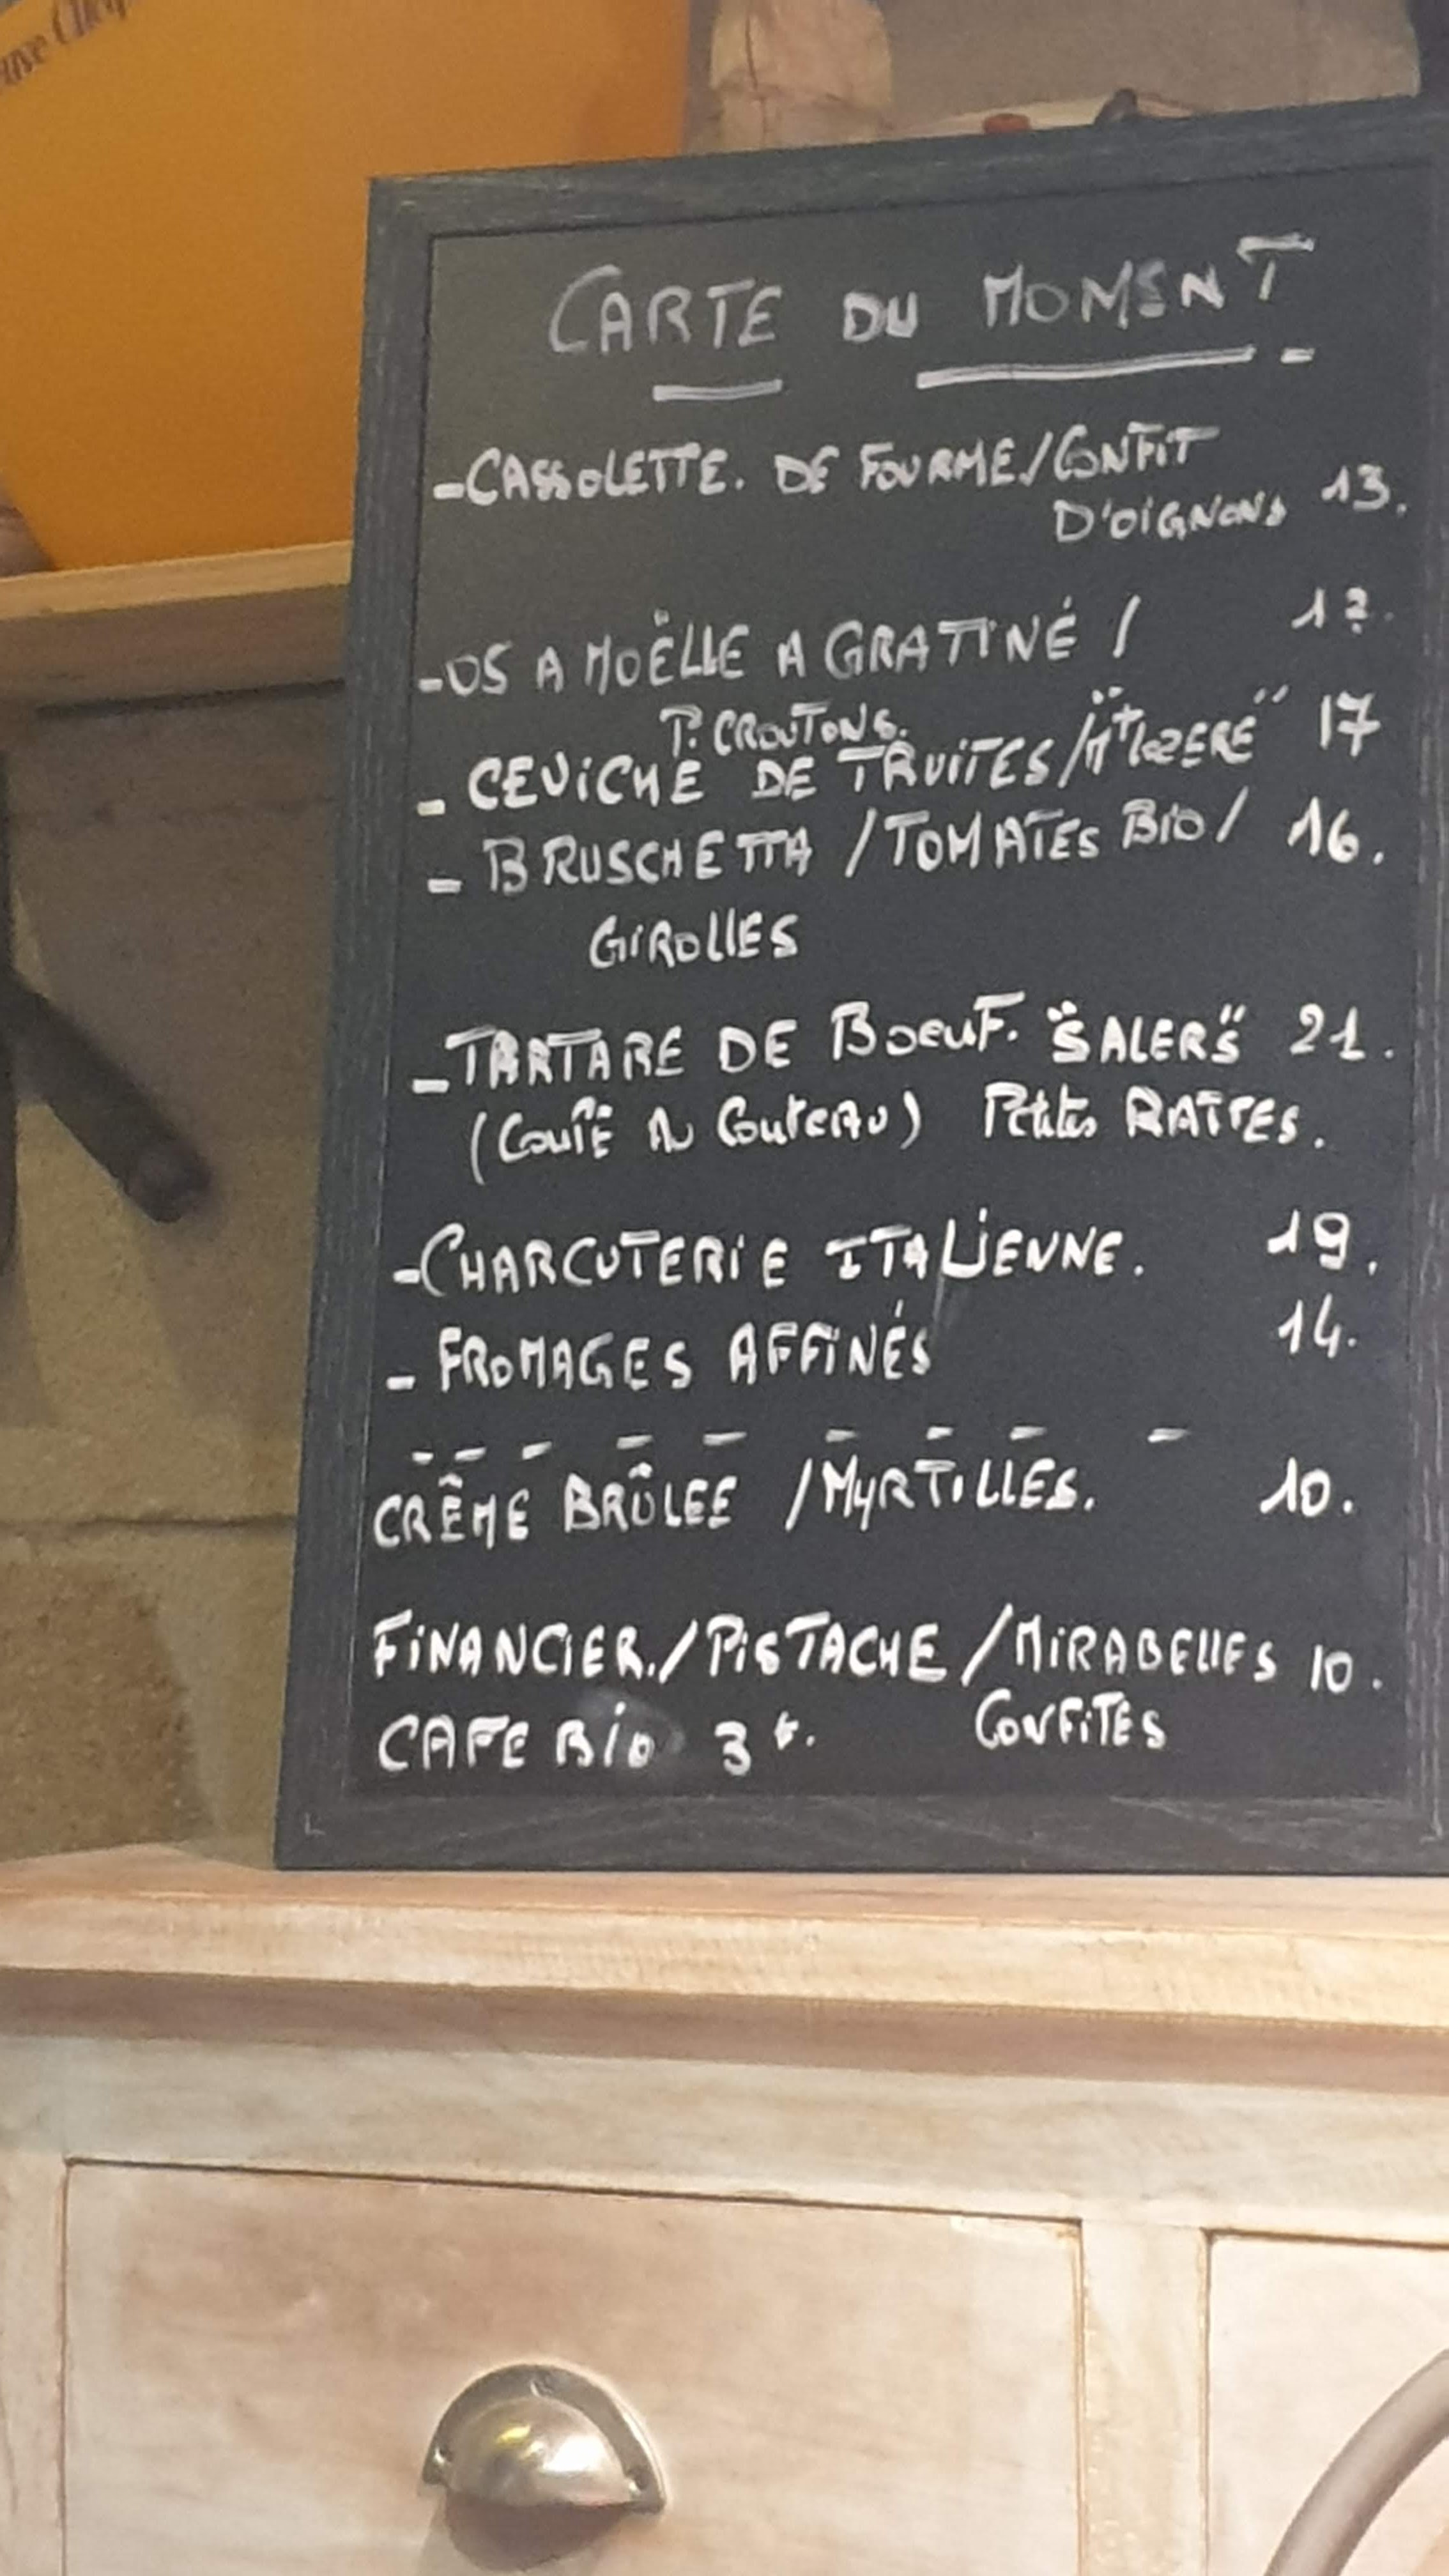 CARTE DU MOMENT
-CASSOLETTE. DE FOURME/CONFIT
D'OIGNONS 13.
-OS A MOËLLE A GRATINÉ /
P. CROUTONS.
- CEVICHE DE TRUITES/"Mt LOZERE" 17
- BRUSCHETTA /TOMATES BIO/ 16.
GIROLLES
-TARTARE DE BOEUF. "SALERS" 21.
(COUPÉ AU COUTEAU) Petites RATTES.
-CHARCUTERIE ITALIENNE. 19.
- FROMAGES AFFINÉS 14.
- - - - - - - - -
CRÊME BRÛLEE /MYRTILLES. 10.
FINANCIER./PISTACHE/MIRABELLES 10.
CONFITES
CAFE BIO 3€.